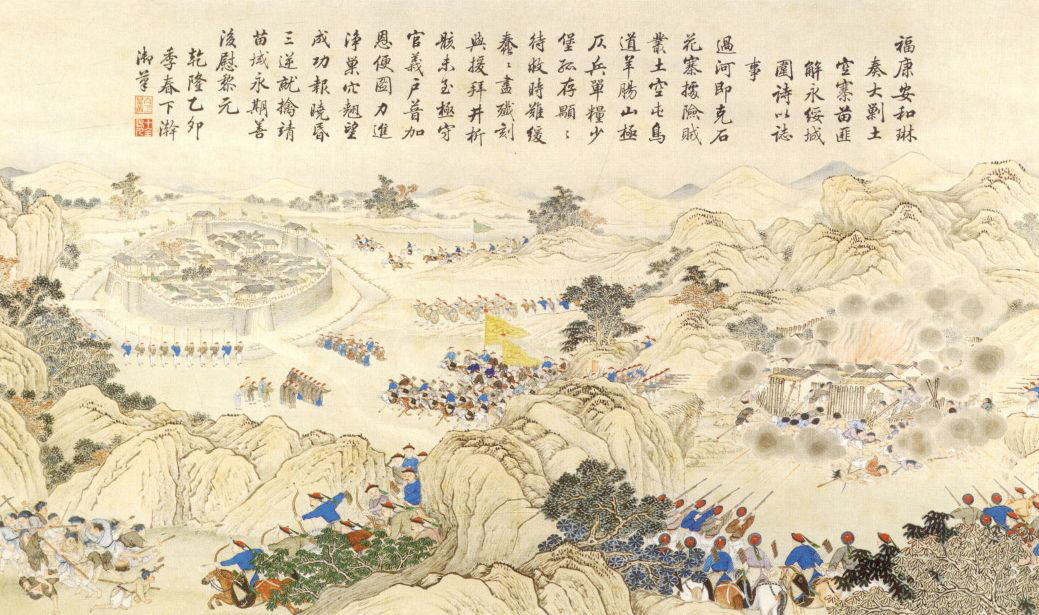 福康安和琳
奏大剿土
空寨苗匪
解永绥城
圍诗以誌
事
過河即克石
花寨據險賊
叢土空屯鳥
道羊腸山極
仄兵單糧少
堡孤存顯〻
待收時難緩
蠢〻盡殲刻
與援拜井析
骸未至極守
官義户普加
恩便圖力進
淨巢穴翹望
成功報曉昏
三逆就擒靖
苗域永期善
後慰黎元
乾隆乙卯
季春下澣
御筆